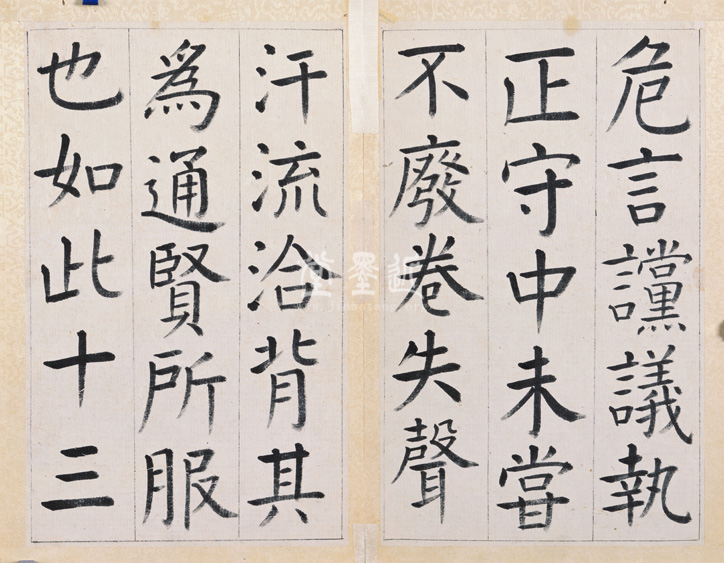 危言讜議執
正守中未嘗
不廢卷失聲
汗流洽背其
為通賢所服
也如此十三
近墨堂